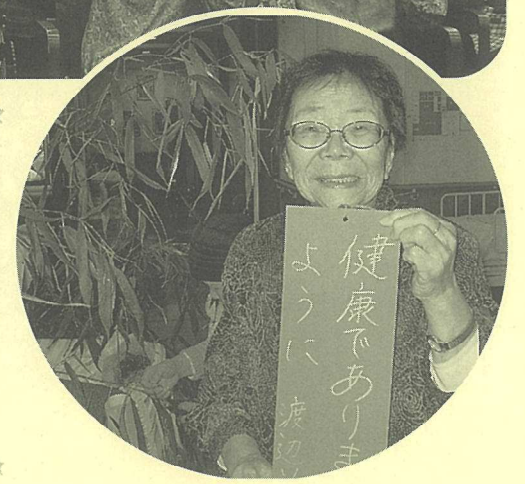 健康でありま
ように
渡辺